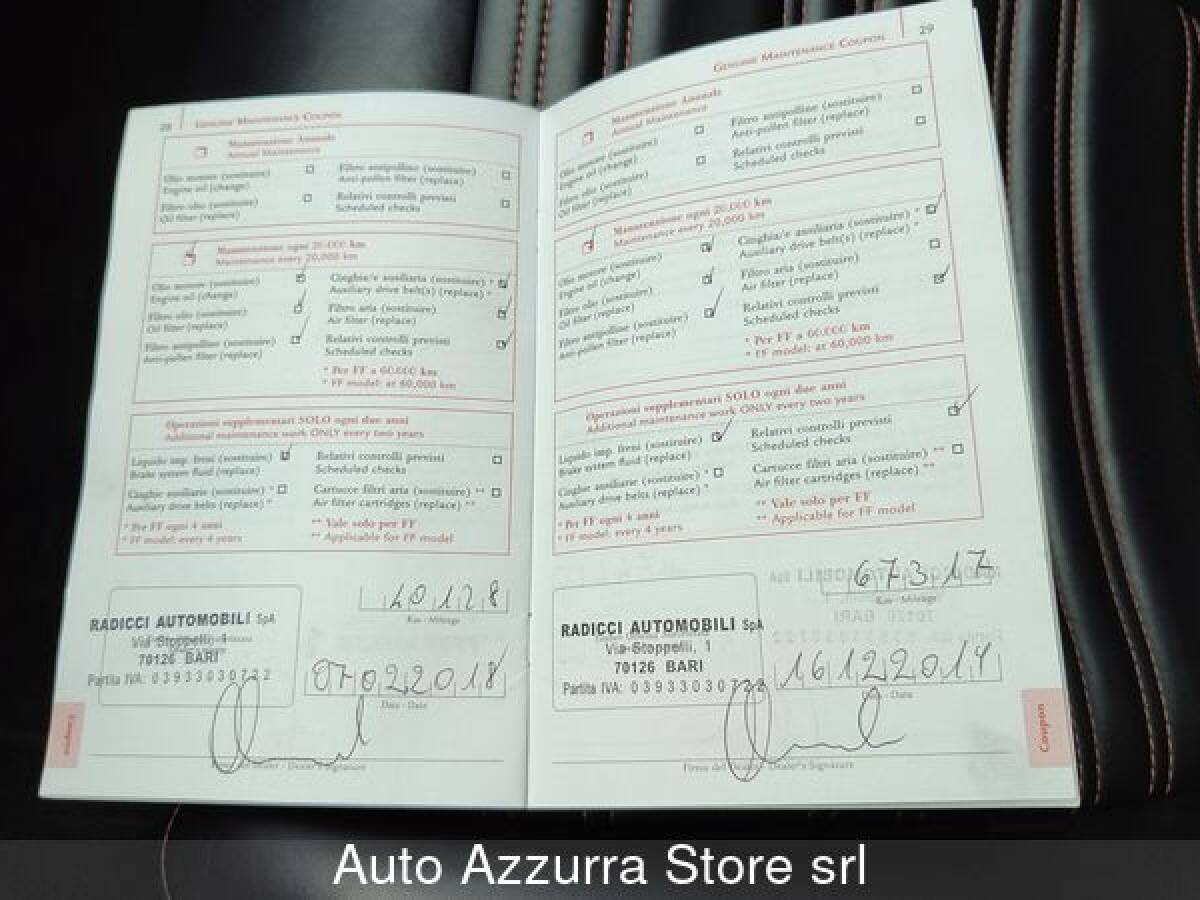 28
GENUINE MAINTENANCE COUPON
Manutenzione Annuale
Annual Maintenance
Olio motore (sostituire)
Engine oil (change)
Filtro antipolline (sostituire)
Anti-pollen filter (replace)
Filtro olio (sostituire)
Oil filter (replace)
Relativi controlli previsti
Scheduled checks
Manutenzione ogni 20.000 km
Maintenance every 20,000 km
Olio motore (sostituire)
Engine oil (change)
Cinghia/e ausiliaria (sostituire) *
Auxiliary drive belt(s) (replace) *
Filtro olio (sostituire)
Oil filter (replace)
Filtro aria (sostituire)
Air filter (replace)
Filtro antipolline (sostituire)
Anti-pollen filter (replace)
Relativi controlli previsti
Scheduled checks
* Per FF a 60.000 km
* FF model: at 60,000 km
Operazioni supplementari SOLO ogni due anni
Additional maintenance work ONLY every two years
Liquido imp. freni (sostituire)
Brake system fluid (replace)
Relativi controlli previsti
Scheduled checks
Cinghie ausiliarie (sostituire) *
Auxiliary drive belts (replace) *
Cartucce filtri aria (sostituire) **
Air filter cartridges (replace) **
* Per FF ogni 4 anni
* FF model: every 4 years
** Vale solo per FF
** Applicable for FF model
Km - Mileage
RADICCI AUTOMOBILI SpA
Via Stoppelli, 1
70126 BARI
Partita IVA: 03933030722
07022018
Data - Date
Dealer's Signature
Coupon
29
GENUINE MAINTENANCE COUPON
Manutenzione Annuale
Annual Maintenance
Olio motore (sostituire)
Engine oil (change)
Filtro antipolline (sostituire)
Anti-pollen filter (replace)
Filtro olio (sostituire)
Oil filter (replace)
Relativi controlli previsti
Scheduled checks
Manutenzione ogni 20.000 km
Maintenance every 20,000 km
Olio motore (sostituire)
Engine oil (change)
Cinghia/e ausiliaria (sostituire) *
Auxiliary drive belt(s) (replace) *
Filtro olio (sostituire)
Oil filter (replace)
Filtro aria (sostituire)
Air filter (replace)
Filtro antipolline (sostituire)
Anti-pollen filter (replace)
Relativi controlli previsti
Scheduled checks
* Per FF a 60.000 km
* FF model: at 60,000 km
Operazioni supplementari SOLO ogni due anni
Additional maintenance work ONLY every two years
Liquido imp. freni (sostituire)
Brake system fluid (replace)
Relativi controlli previsti
Scheduled checks
Cinghie ausiliarie (sostituire) *
Auxiliary drive belts (replace) *
Cartucce filtri aria (sostituire) **
Air filter cartridges (replace) **
* Per FF ogni 4 anni
* FF model: every 4 years
** Vale solo per FF
** Applicable for FF model
67317
Km - Mileage
RADICCI AUTOMOBILI SpA
Via Stoppelli, 1
70126 BARI
Partita IVA: 03933030722
Data - Date
Firma del Dealer - Dealer's Signature
Coupon
Auto Azzurra Store srl